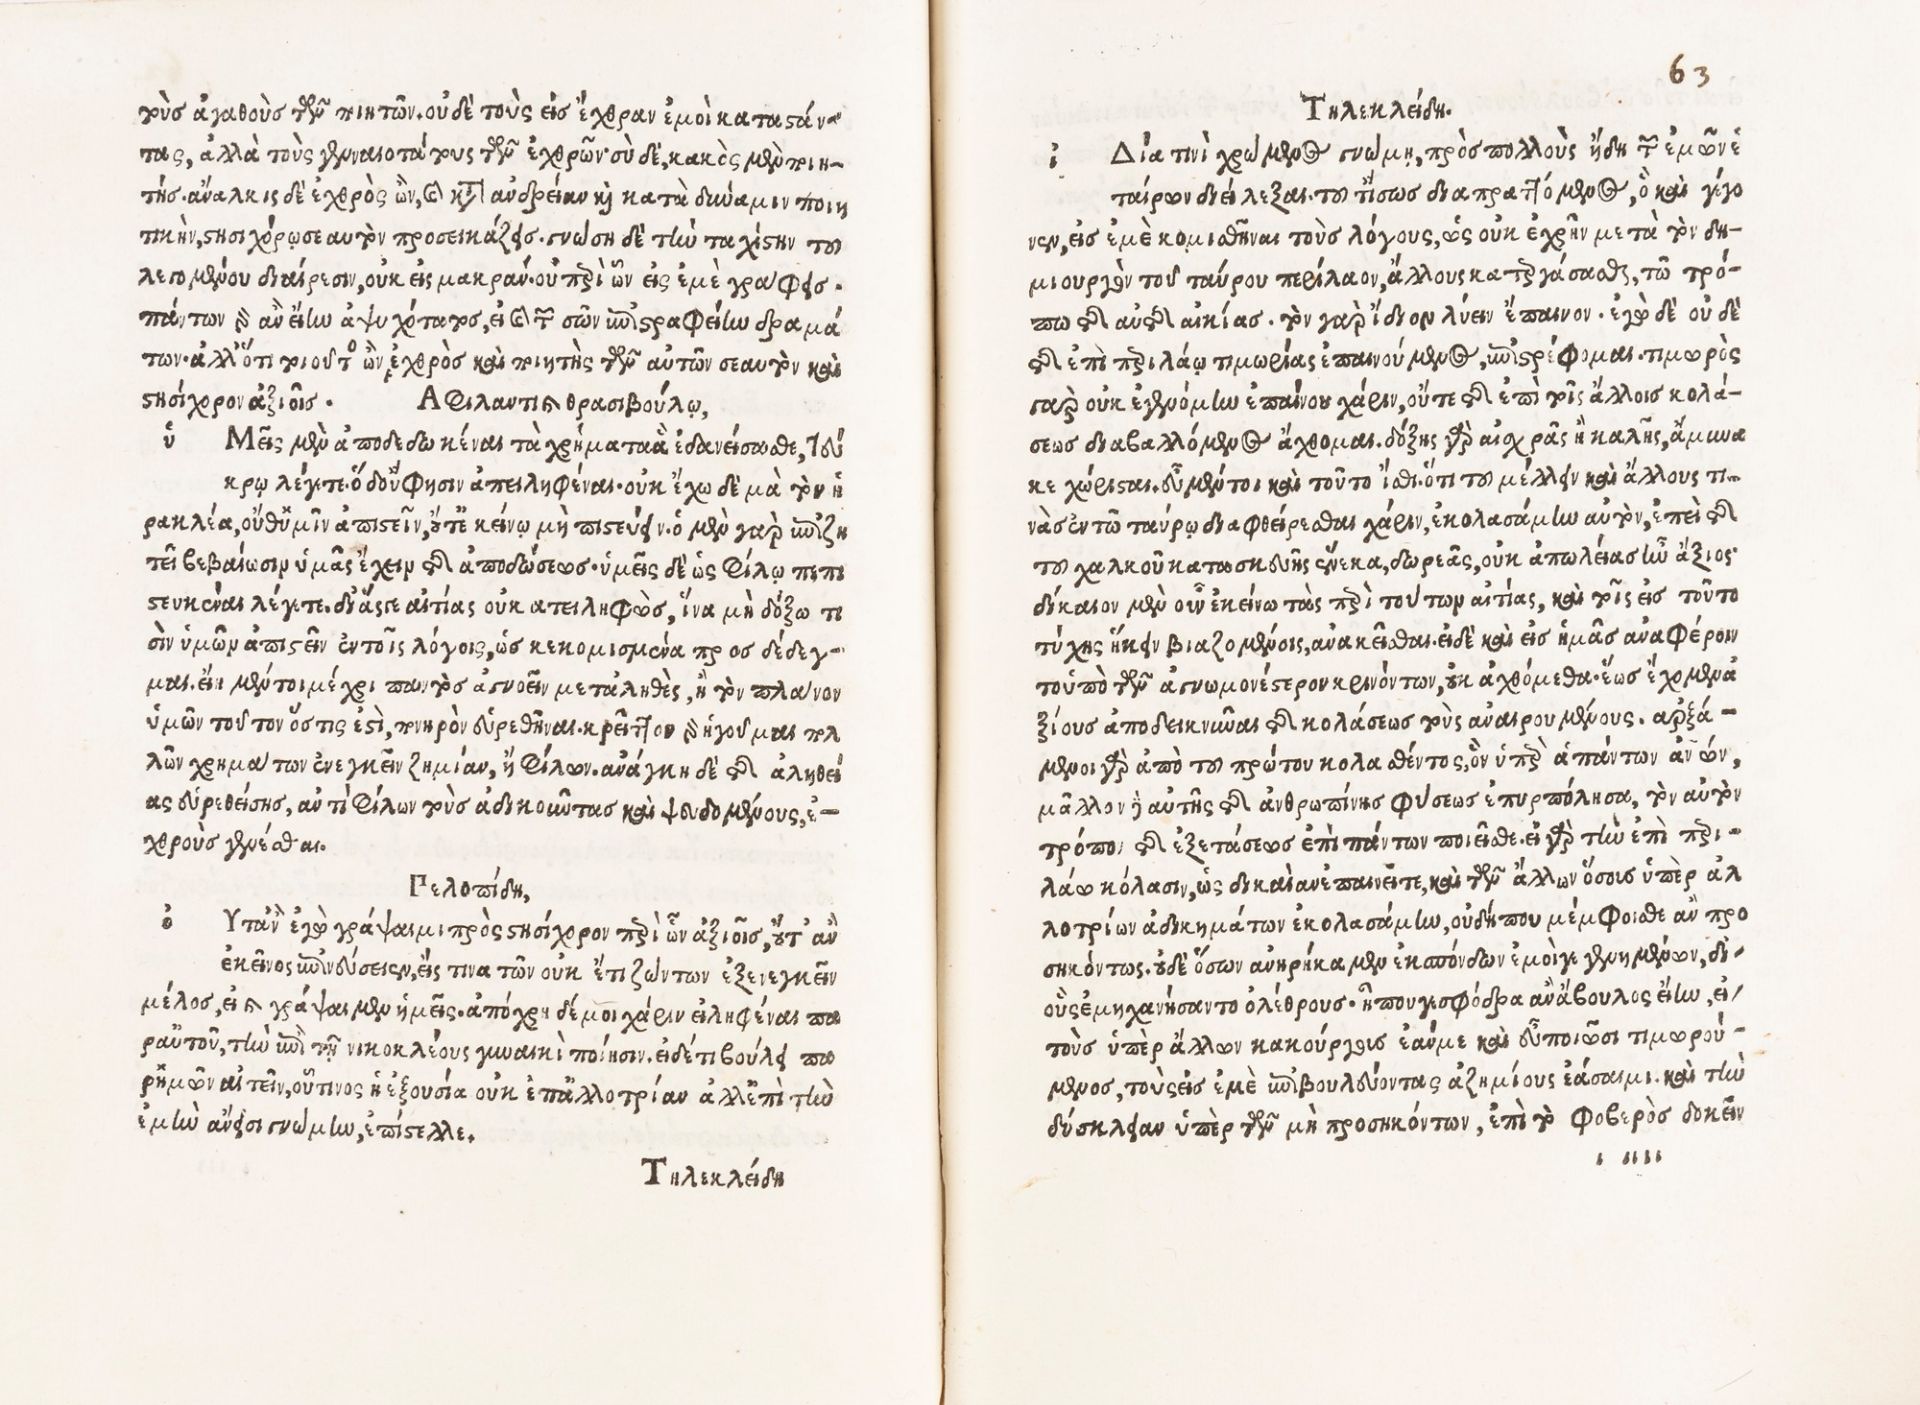 τοὺς ἀγαθοὺς τῶν ποιητῶν. οὐδὲ τοὺς εἰς ἔχθραν ἐμοὶ καταστάν-
τας, ἀλλὰ τοὺς γενναιοτάτους τῶν ἐχθρῶν· σὺ δὲ, κακὸς μὲν ποιη-
τής. ἄναλκις δὲ ἐχθρὸς ὢν, καὶ ἀνδρείαν καὶ κατὰ δύναμιν ποιη
τικὴν, στησιχόρῳ σεαυτὸν προσεικάζεις. γνώσῃ δὲ τὴν ταχίστην του
λεγομένου διαίρεσιν, οὐκ εἰς μακράν. οὐ περὶ ὧν εἰς ἐμὲ γράφεις.
πάντων γὰρ ἂν εἴην ἀψυχότατος, εἰ τῶν σῶν ἐπιστραφείην δραμά
των. ἀλλ' ὅτι τοιοῦτος ὢν ἐχθρὸς καὶ ποιητὴς τῶν αὐτῶν σεαυτὸν καὶ
στησίχορον ἀξιοῖς. Αφιλαντι καὶ θρασιβούλῳ,
ὑ Μεῖς μὲν ἀποδεδωκέναι τὰ χρήματα ἃ ἐδανείσασθε, Ἰού
κρῳ λέγετε. ὁ δ' οὔ φησιν ἀπειληφέναι. οὐκ ἔχω δὲ μὰ τὸν ἡ
ρακλέα, οὔθ' ὑμῖν ἀπιστεῖν, οὔτε κείνῳ μὴ πιστεύειν. ὁ μὲν γὰρ ἐπιζη
τεῖ βεβαίωσιν ὑμᾶς ἔχειν τῆς ἀποδώσεως. ὑμεῖς δὲ ὡς φίλῳ πεπι
στευκέναι λέγετε. δι' ἅς γε αἰτίας οὐκ ἀπειληφὼς, ἵνα μὴ δόξω τι
σὶν ὑμῶν ἀπιστεῖν ἐν τοῖς λόγοις, ὡς κεκομισμένα προσδέδεγ-
μαι. εἴη μέντοι μέχρι παντὸς ἀγνοεῖν με τἀληθὲς, ἢ τὸν πλάνον
ὑμῶν τοῦτον ὅστις ἐστὶ, πονηρὸν εὑρεθῆναι. κρεῖττον γὰρ ἡγοῦμαι πολ
λῶν χρημάτων ἐνεγκεῖν ζημίαν, ἢ φίλων. ἀνάγκη δὲ τῆς ἀληθεί
ας εὑρεθείσης, ἀντὶ φίλων τοὺς ἀδικοῦντας καὶ ψευδομένους, ἐ-
χθροὺς γενέσθαι.
Γελοπίδη,
ὀ Υτ' ἂν ἐγὼ γράψαιμι πρὸς στησίχορον περὶ ὧν ἀξιοῖς, οὔτ' ἂν
ἐκεῖνος ἐπινεύσειεν, εἴς τινα τῶν οὐκ ἔτι ζώντων ἐξενεγκεῖν
μέλος, εἰ καὶ γράψαιμεν ἡμεῖς. ἀπόχρη δέ μοι χάριν εἰληφέναι πα
ρ' αὐτοῦ, τὴν ἐπὶ τῇ νικοκλέους γυναικὶ ποίησιν. εἰ δέ τι βούλει πα
ρ' ἡμῶν αἰτεῖν, οὗτινος ἡ ἐξουσία οὐκ ἐπ' ἀλλοτρίαν ἀλλ' ἐπὶ τὴν
ἐμὴν ἀνήσι γνώμην, ἐπίστελλε.
Τηλεκλείδη
63
Τηλεκλείδη.
ἰ Δία τινὶ χρώμενος γνώμῃ, πρὸς πολλοὺς ἤδη τῶν ἐμῶν ἑ
ταίρων διείλεξαι. τοῦτ' ἴσως διαπραττόμενος, ὃ καὶ γέγο
νεν, εἰς ἐμὲ κομισθῆναι τοὺς λόγους, ὡς οὐκ ἐχρῆν μετὰ τὸν δη-
μιουργὸν τοῦ ταύρου περίλαον, ἄλλους κατεργάσασθαι, τῷ τρό-
πῳ τῆς αὐτῆς αἰκίας. τὸν γὰρ ἴδιον λύειν ἔπαινον. ἐγὼ δὲ οὐδὲ
τῆς ἐπὶ περιλάῳ τιμωρίας ἐπαινούμενος, ἐπιστρέφομαι. τιμωρὸς
γὰρ οὐκ ἐγενόμην ἐπαίνου χάριν, οὔτε τῆς ἐπὶ τοῖς ἄλλοις κολά-
σεως διαβαλλόμενος ἄχθομαι. δόξης γὰρ αἰσχρᾶς ἢ καλῆς, ἄμυνα
κεχώρισται. εὖ μέντοι καὶ τοῦτο ἴσθι. ὅτι τοῦ μέλλειν καὶ ἄλλους τι-
νὰς ἐν τῷ ταύρῳ διαφθείρεσθαι χάριν, ἐκολασάμην αὐτὸν, ἐπεὶ τῆς
τοῦ χαλκοῦ κατασκευῆς ἕνεκα, δωρεᾶς, οὐκ ἀπωλείας ἦν ἄξιος·
δίκαιον μὲν οὖν ἐκείνω τὰς περὶ τούτων αἰτίας, καὶ τοῖς εἰς τοῦτο
τύχης ἥκειν βιαζομένοις, ἀνακεῖσθαι. εἰ δὲ καὶ εἰς ἡμᾶς ἀναφέροιν
το ὑπὸ τῶν ἀγνωμονέστερον κρινόντων, οὐκ ἀχθόμεθα. ἕως ἔχομεν ἀ
ξίους ἀποδεικνῦναι τῆς κολάσεως τοὺς ἀναιρουμένους. ἀρξά-
μενοι γὰρ ἀπὸ τοῦ πρώτου κολασθέντος, ὃν ὑπὲρ ἁπάντων ἀνῶν,
μᾶλλον ἢ αὐτῆς τῆς ἀνθρωπίνης φύσεως ἐπυρπόλησα, τὸν αὐτὸν
τρόπον τῆς ἐξετάσεως ἐπὶ πάντων ποιεῖσθε. εἰ γὰρ τὴν ἐπὶ περι-
λάῳ κόλασιν, ὡς δικαίαν ἐπαινεῖτε, καὶ τῶν ἄλλων ὅσοις ὑπὲρ ἀλ
λοτρίων ἀδικημάτων ἐκολασάμην, οὐδήπου μέμφοισθε ἂν προ
σηκόντως. οὐδὲ ὅσων ἀνῄρηκα μὲν ἐκσπόνδων ἐμοί γε γενημένων, δι-
οὓς ἐμηχανήσαντο ὀλέθρους. ἦ που γε σφόδρα ἂν ἄβουλος εἴην, εἰ
τοὺς ὑπὲρ ἄλλων κακούργοις ἐάν με καὶ εὖ ποιῶσι τιμωρού-
μενος, τοὺς εἰς ἐμὲ ἐπιβουλεύοντας ἀζημίους ἐάσαιμι. καὶ τὴν
δύσκλειαν ὑπὲρ τῶν μὴ προσηκόντων, ἐπὶ τὸ φοβερὸς δοκεῖν
ι iiii